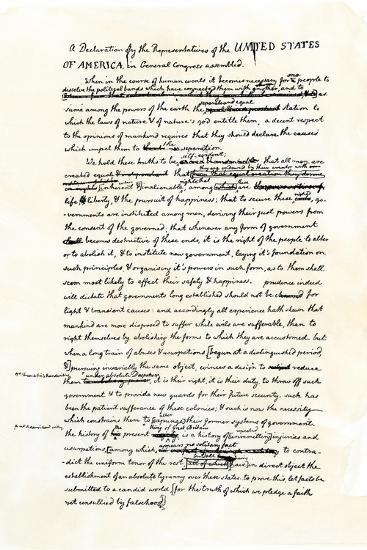 A Declaration by the Representatives of the UNITED STATES
OF AMERICA, in General Congress assembled.
When in the course of human events it becomes necessary for one people to
dissolve the political bands which have connected them with another, and to
assume among the powers of the earth the separate and equal station to
which the laws of nature & of nature's god entitle them, a decent respect
to the opinions of mankind requires that they should declare the causes
which impel them to the separation.
We hold these truths to be self-evident; that all men are
created equal
life, & liberty, & the pursuit of happiness; that to secure these rights, go-
-vernments are instituted among men, deriving their just powers from
the consent of the governed; that whenever any form of government
becomes destructive of these ends, it is the right of the people to alter
or to abolish it, & to institute new government, laying it's foundation on
such principles & organising it's powers in such form, as to them shall
seem most likely to effect their safety & happiness. prudence indeed
will dictate that governments long established should not be changed for
light & transient causes: and accordingly all experience hath shewn that
mankind are more disposed to suffer while evils are sufferable, than to
right themselves by abolishing the forms to which they are accustomed. but
when a long train of abuses & usurpations [begun at a distinguished period,
&] pursuing invariably the same object, evinces a design to reduce
them under absolute Despotism it is their right, it is their duty, to throw off such
government & to provide new guards for their future security. such has
been the patient sufferance of these colonies; & such is now the necessity
which constrains them to [expunge] their former systems of government.
the history of the present is a history of injuries and
usurpations, [among which to contra-
-dict the uniform tenor of the rest in direct object the
establishment of an absolute tyranny over these states. to prove this, let facts be
submitted to a candid world, [for the truth of which we pledge a faith
yet unsullied by falsehood]